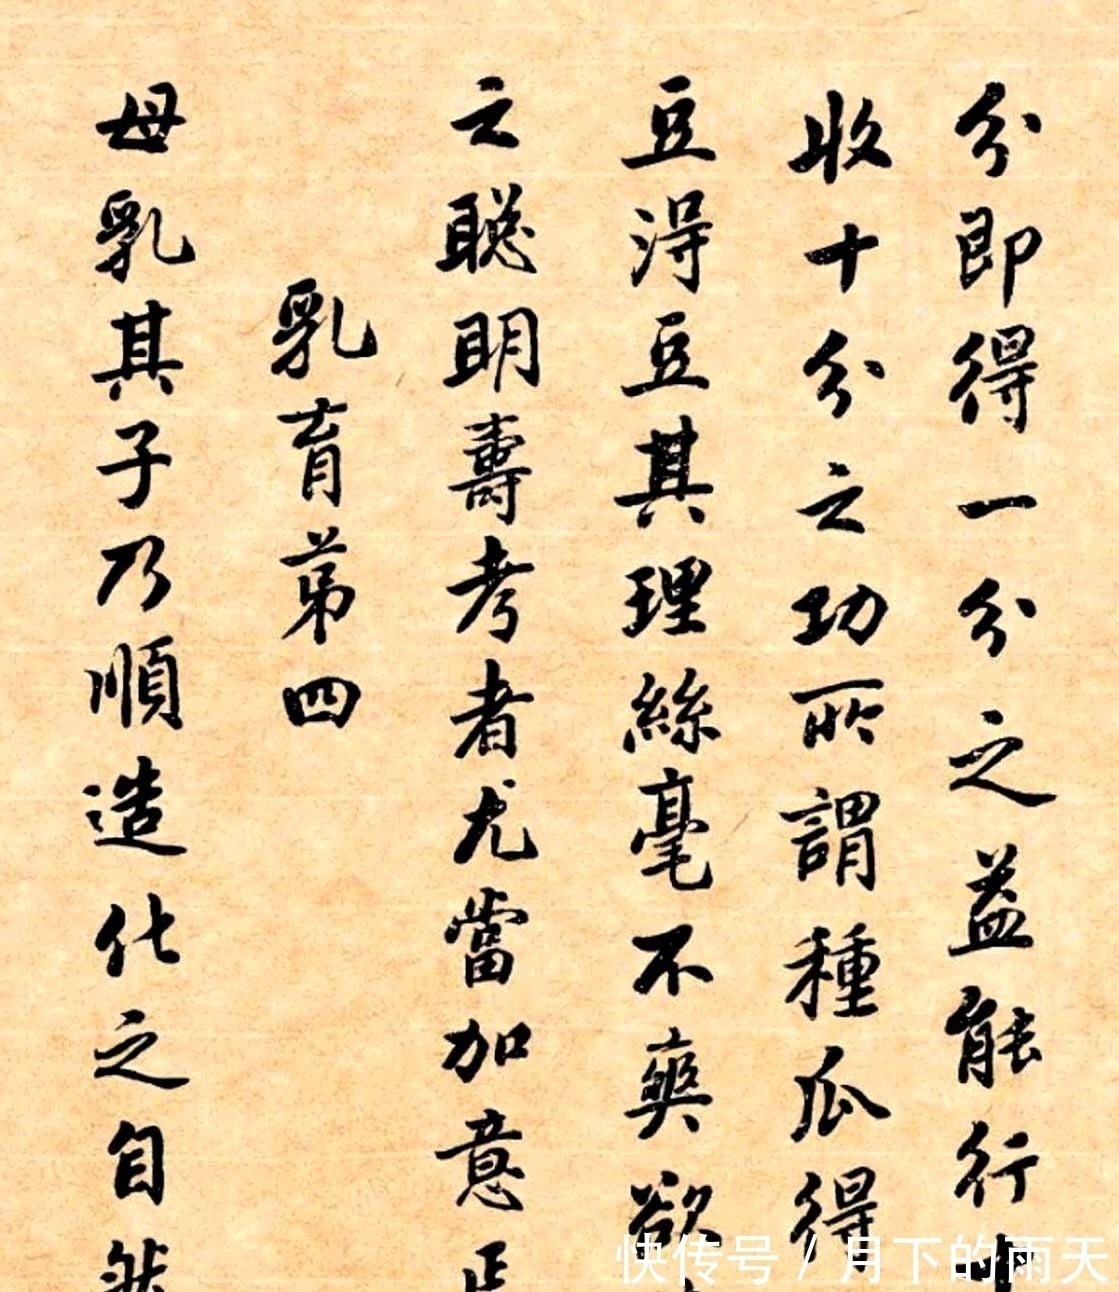 分即得一分之益能行
收十分之功所謂種瓜得
豆得豆其理絲毫不爽欲
之聰明壽考者尤當加意
乳育第四
母乳其子乃順造化之自然
快传号 / 月下的雨天